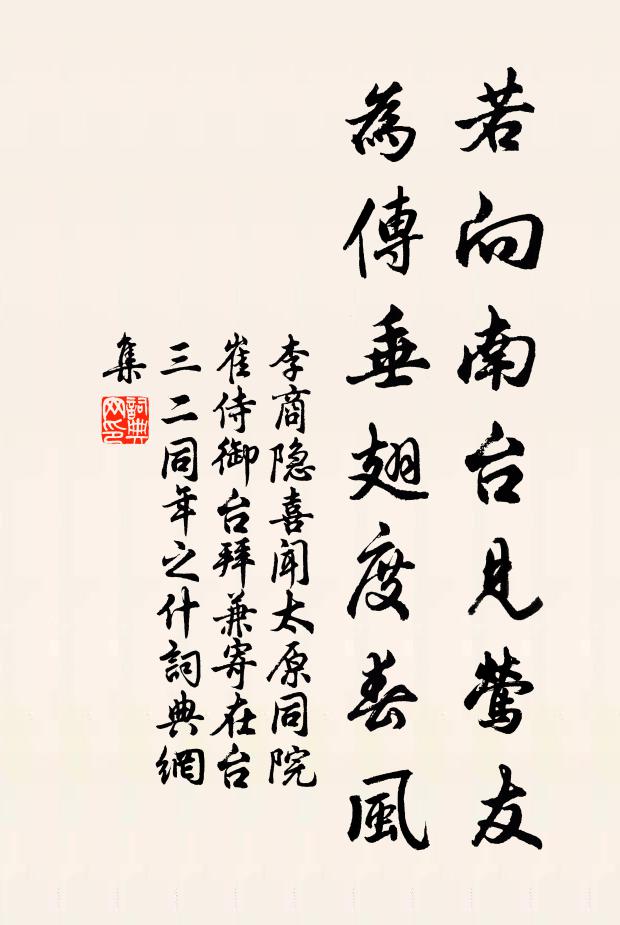 若向南台見鶯友
為傳垂翅度春風
李商隐喜聞太原同院
崔侍御台拜兼寄在台
三二同年之什詞典網
集
詞典
网印